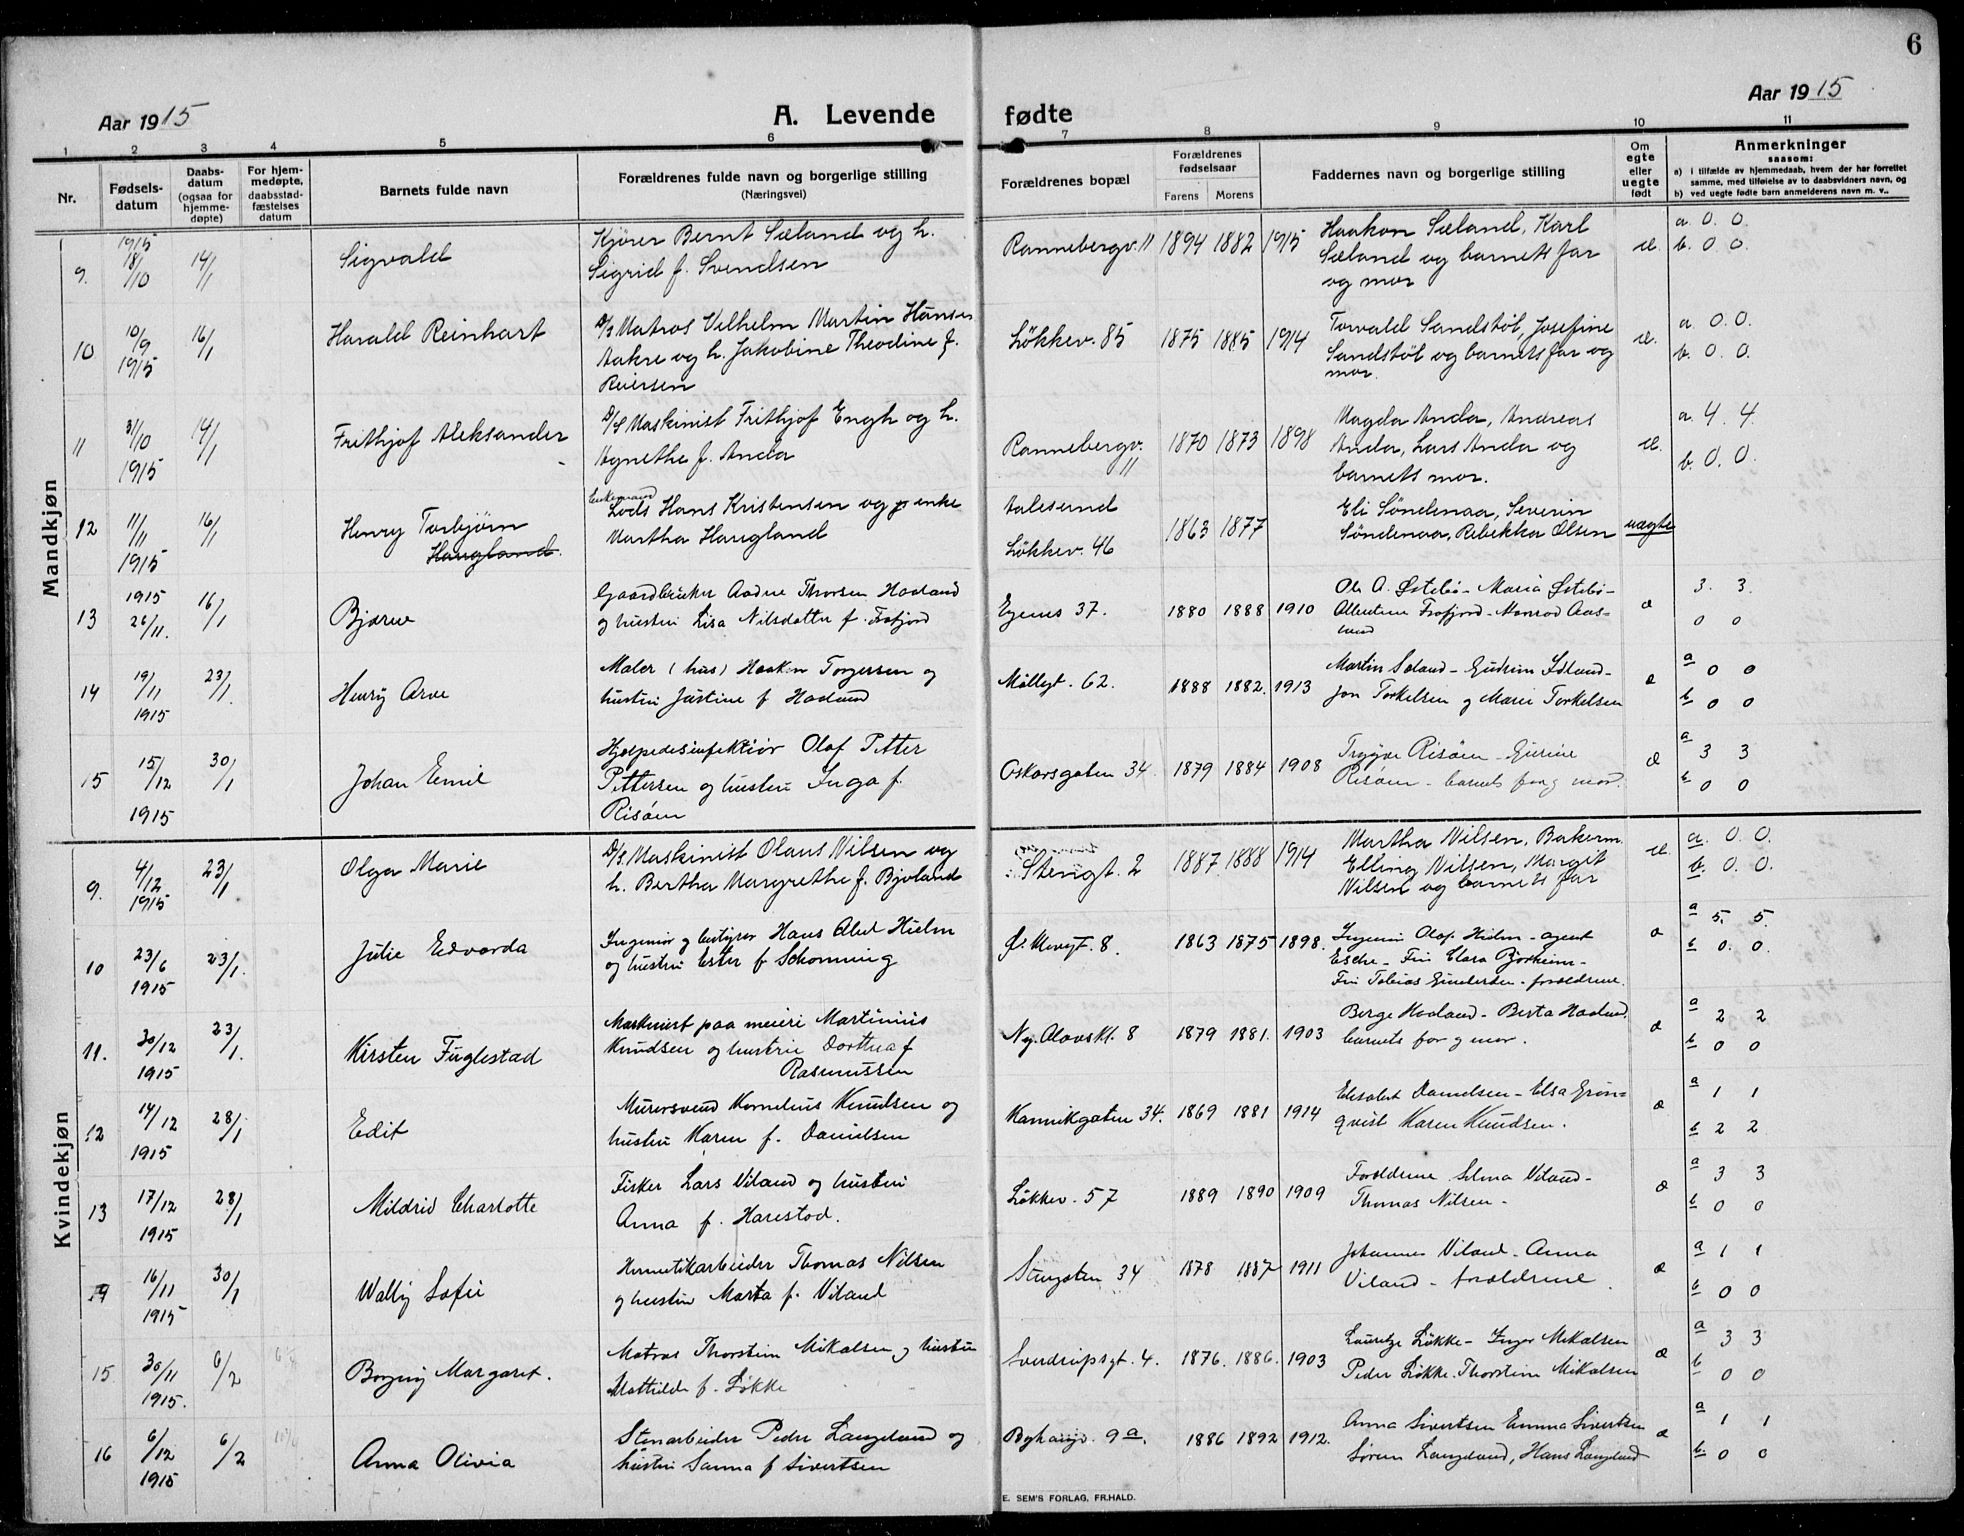 6
Aar 1915
A. Levende fødte
Aar 1915
1 2 3 4 5 6 7 8 9 10 11
Nr.
Fødsels-
datum
Daabs-
datum
(ogsaa for
hjemme-
døpte)
For hjem-
medøpte,
daabsstad-
fæstelses
datum
Barnets fulde navn
Forældrenes fulde navn og borgerlige stilling
(Næringsvei)
Forældrenes bopæl
Forældrenes
fødselsaar
Farens Morens
Faddernes navn og borgerlige stilling
Om
egte
eller
uegte
født
Anmerkninger
saasom:
a) i tilfælde av hjemmedaab, hvem der har forrettet
samme, med tilføielse av to daabsvidners navn, og
b) ved uegte fødte barn anmelderens navn m. v..
Mandkjøn
9. 1915 18/10 14/1 Sigvald
Kjører Bernt Sæland og h.
Sigrid f. Svendsen
Rannebergv. 11 1894 1882 1915
Haakon Sæland, Karl
Sæland og barnets far
og mor
æ. a. 0. 0.
b. 0 0.
10 10/9 1915 16/1 Harald Reinhart
D/S Matros Vilhelm Martin Hansen
Aakre og h. Jakobine Theodine f.
Reiersen
Løkkev. 85 1875 1885 1914
Torvald Sandstøl, Josefine
Sandstøl og barnets far og
mor
æ. a. 0. 0.
b. 0. 0.
11 31/10 1915 14/1 Frithjof Aleksander
D/S Maskinist Frithjof Engh og h.
Agnethe f. Anda
Rannebergv. 11 1870 1873 1898
Magda Anda, Andreas
Anda, Lars Anda og
barnets mor.
æ. a. 4. 4.
b. 0. 0.
12 11/11 1915 16/1 Henry Torbjørn
Haugland.
Enkemand
Lods Hans Kristensen og enke
Martha Haugland
Aalesund
Løkkev. 46 1863 1877
Eli Søndenaa, Severin
Søndenaa, Rebekka Olsen
uægte
13 1915 26/11. 16/1 Bjarne
Gaardbruker Aadne Thorsen Hadland
og hustru Lisa Nilsdatter f. Frafjord
Egenes 37. 1880 1888 1910
Ole A. Østebø - Maria Østebø -
Albertine Frafjord - Konrad Aas-
lund
æ 3. 3.
0 0
14 19/11 1915 23/1. Henry Arve
Maler (hus) Haakon Torgersen og
hustru Justine f Hadland
Møllegt. 62. 1888 1882. 1913
Jon Torkelsen og Marie Torkelsen
æ a 0 0
b 0 0
15 15/12 1915 30/1 Johan Emil
Hjælpedesinfektiør Olaf Petter
Pettersen og hustru Inga f.
Risøen
Oskarsgaten 34. 1879 1884 1908
Trygve Risøen - Gurine
Risøen - barnets far og mor.
æ a 3 3
b 0 0
Kvindekjøn
9. 4/12 1915 23/1 Olga Marie
D/S Maskinist Olaus Nilsen og
h. Bertha Margrethe f. Bjoland
Stengt. 2 1887 1888 1914
Martha Nilsen, Bakerm.
Elling Nilsen, Margit
Nilsen og barnets far
æ. a. 0. 0.
b. 0. 0.
10 23/6 1915 23/1. Julie Edvarda
Ingeniør og bestyrer Hans Abel Hielm
og hustru Ester f Schønning
8. 1863 1875 1898.
Ingeniør Olaf Hielm - agent
Esche - Fru Clara Bjorheim -
Fru Tobias Gundersen - forældrene.
æ a 5. 5.
b 0. 0.
11. 30/12 1915 23/1. Kirsten Fuglestad
Maskinist paa meieri Martinius
Knudsen og hustru Dorthea f
Rasmussen
Ny. Olavskl. 8 1879 1881. 1903
Berge Hadland - Berta Hadland.
barnets far og mor.
æ a 2 2
b 0 0
12 14/12 1915 28/1 Edit
Murersvend Kornelius Knudsen og
hustru Karen f. Danielsen
Kannikgaten 34. 1869 1881 1914
Elisabet Danielsen - Elsa Grøn-
qvist Karen Knudsen.
æ a 1 1
b 2 2
13 17/12 1915 28/1 Mildrid Charlotte
Fisker Lars Viland og hustru
Anna f. Harestad.
Løkkev. 57 1889 1890 1909
Forældrene Selma Viland -
Thomas Nilsen -
æ a 3 3
b 0 0
16/11 1915 30/1 Wally Sofie
Hermetikarbeider Thomas Nilsen
og hustru Marta f. Viland
Stengaten 34 1878 1887 1911
Johannes Viland - Anna
Viland - forældrene.
æ a 1 1
b 0 0
15 30/11 1915. 6/2 Borgny Margaret.
Matros Thorstein Mikalsen og hustru
Mathilde f. Løkke
Sverdrupsgt. 4. 1876. 1886. 1903
Lauritze Løkke - Inger Mikalsen
Peder Løkke. Thorstein Mikalsen
æ a 3 3
b 0 0
16 6/12 1915 6/2 Anna Olivia
Stenarbeider Peder Langeland og
hustru Sanna f Sivertsen
Byhaugv. 9a. 1886 1892 1912.
Anna Sivertsen Emma Sivertsen
Søren Langeland, Hans Langeland
æ a 1 1
b. 0 0
E. SEM'S FORLAG, FR.HALD.